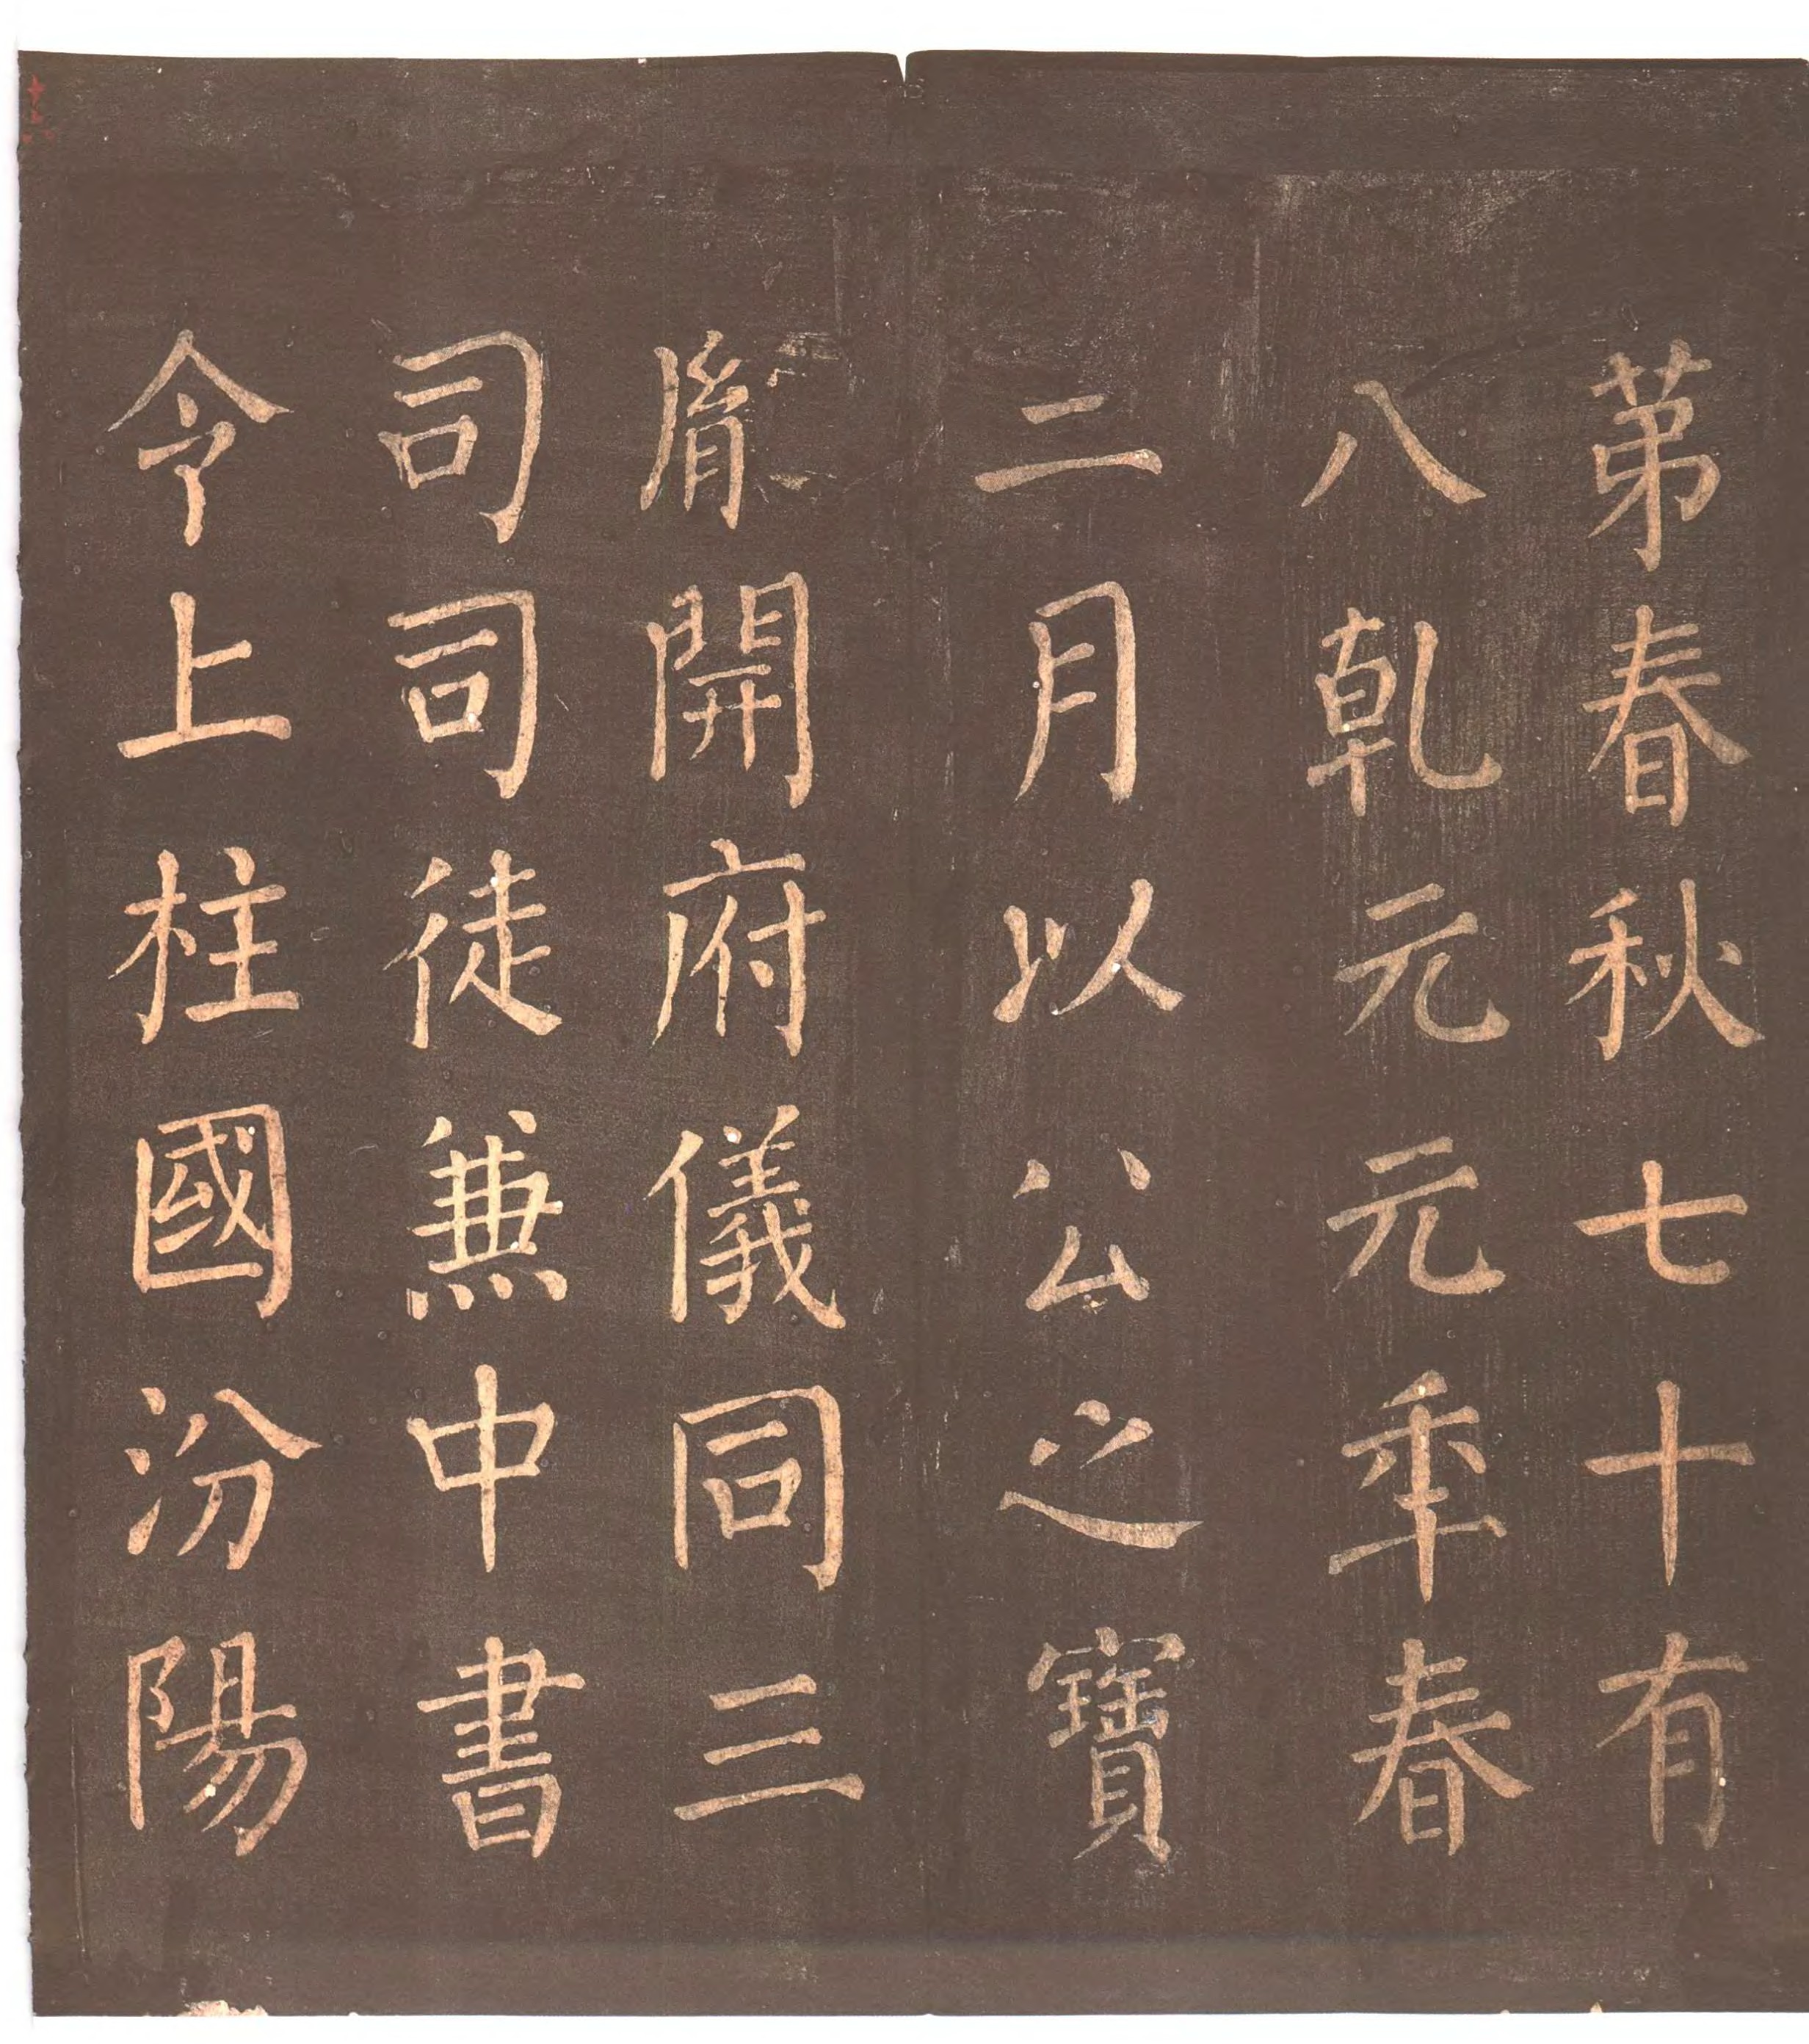 苐春秋七十有
八乾元元年春
二月以公之寶
胤開府儀同三
司司徒兼中書
令上柱國汾陽